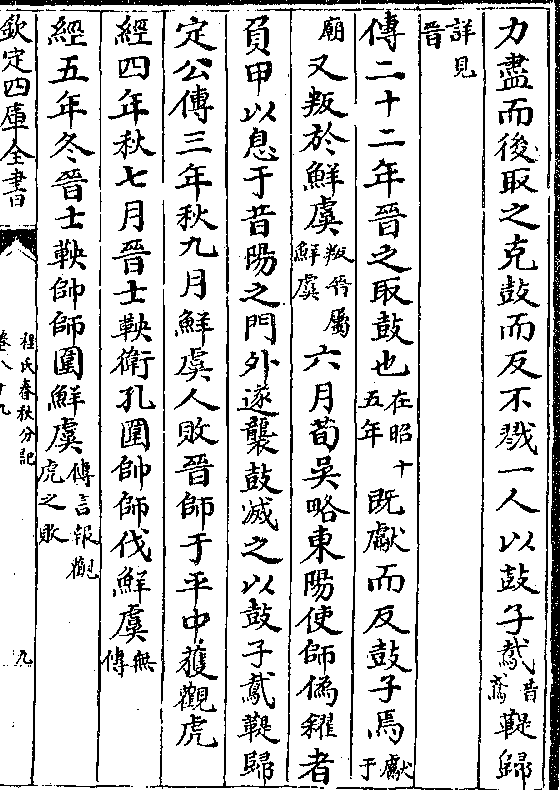 力盡而後取之克鼓而反不戮一人以鼓子䳒鞮歸
詳見
晉
傳二十二年晉之取鼓也在昭十五年既獻而反鼓子焉獻于
廟又叛於鮮虞叛晉屬鮮虞六月荀吳略東陽使師偽糴者
負甲以息于昔陽之門外遂襲鼓滅之以鼓子䳒鞮歸
定公傳三年秋九月鮮虞人敗晉師于平中獲觀虎
經四年秋七月晉士鞅衛孔圉帥師伐鮮虞無傳
經五年冬晉士鞅帥師圍鮮虞傳言報觀虎之敗
欽定四庫全書
程氏春秋分記
卷八十九
九